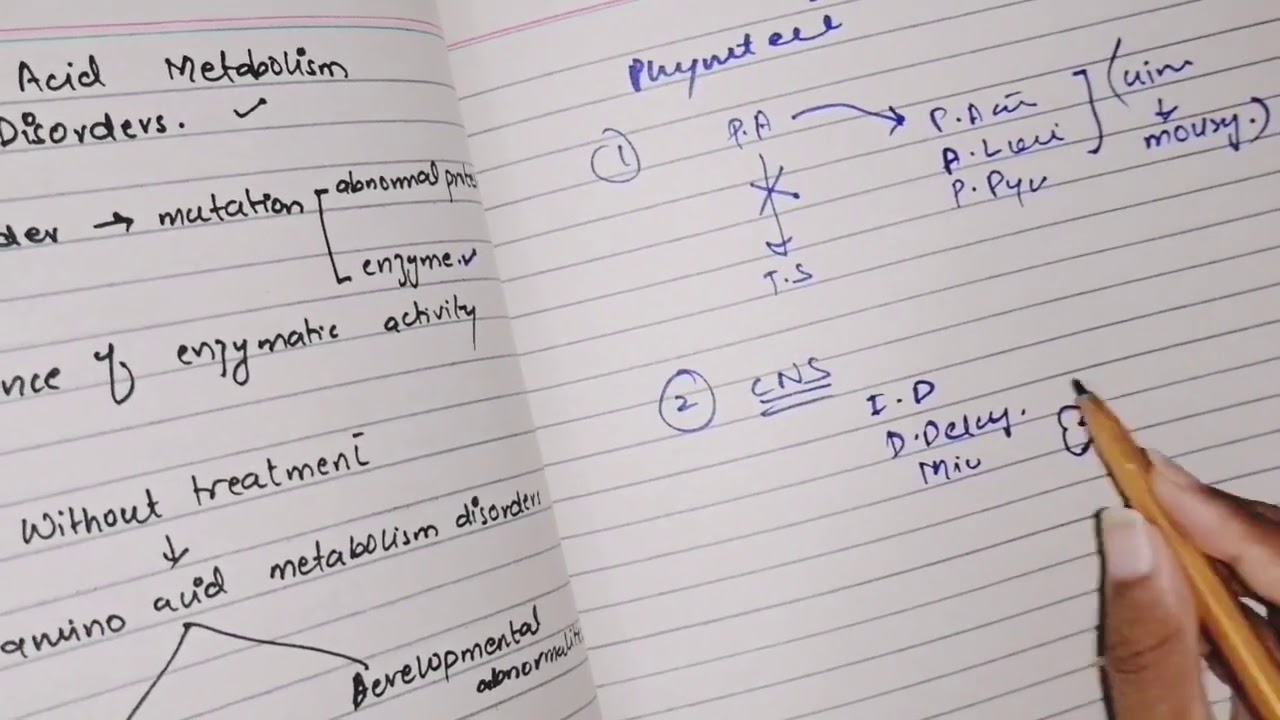 Acid Metabolism
Disorders. ✓
der → mutation
abnormal prote
enzyme. ✓
nce of enzymatic activity
Without treatment
↓
amino acid metabolism disorders
Developmental
abnormaliti
①
P.A
P.Acī
A.
P.Pyu
mousy.)
T.S
② CNS
I.D
D.Delay.
Mic